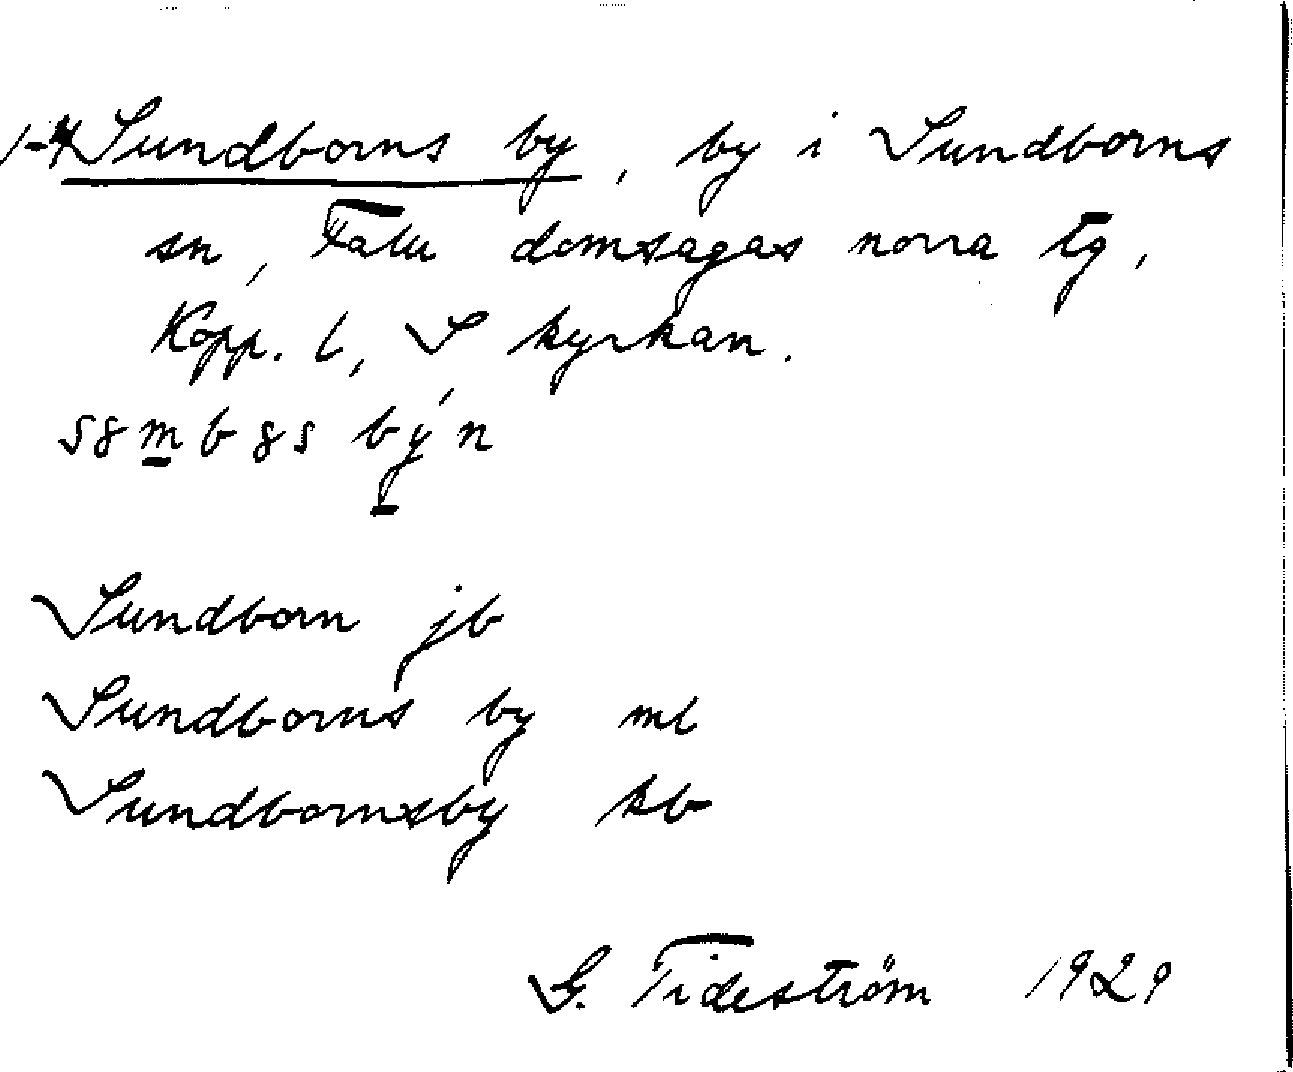 1-4 Sundborns by, by i Sundborns
sn, Falu domsagas norra tg,
Kopp. l, S kyrkan.
s8mb8s býn
Sundborn jb
Sundborns by ml
Sundbornsby kb
G. Tideström 1929